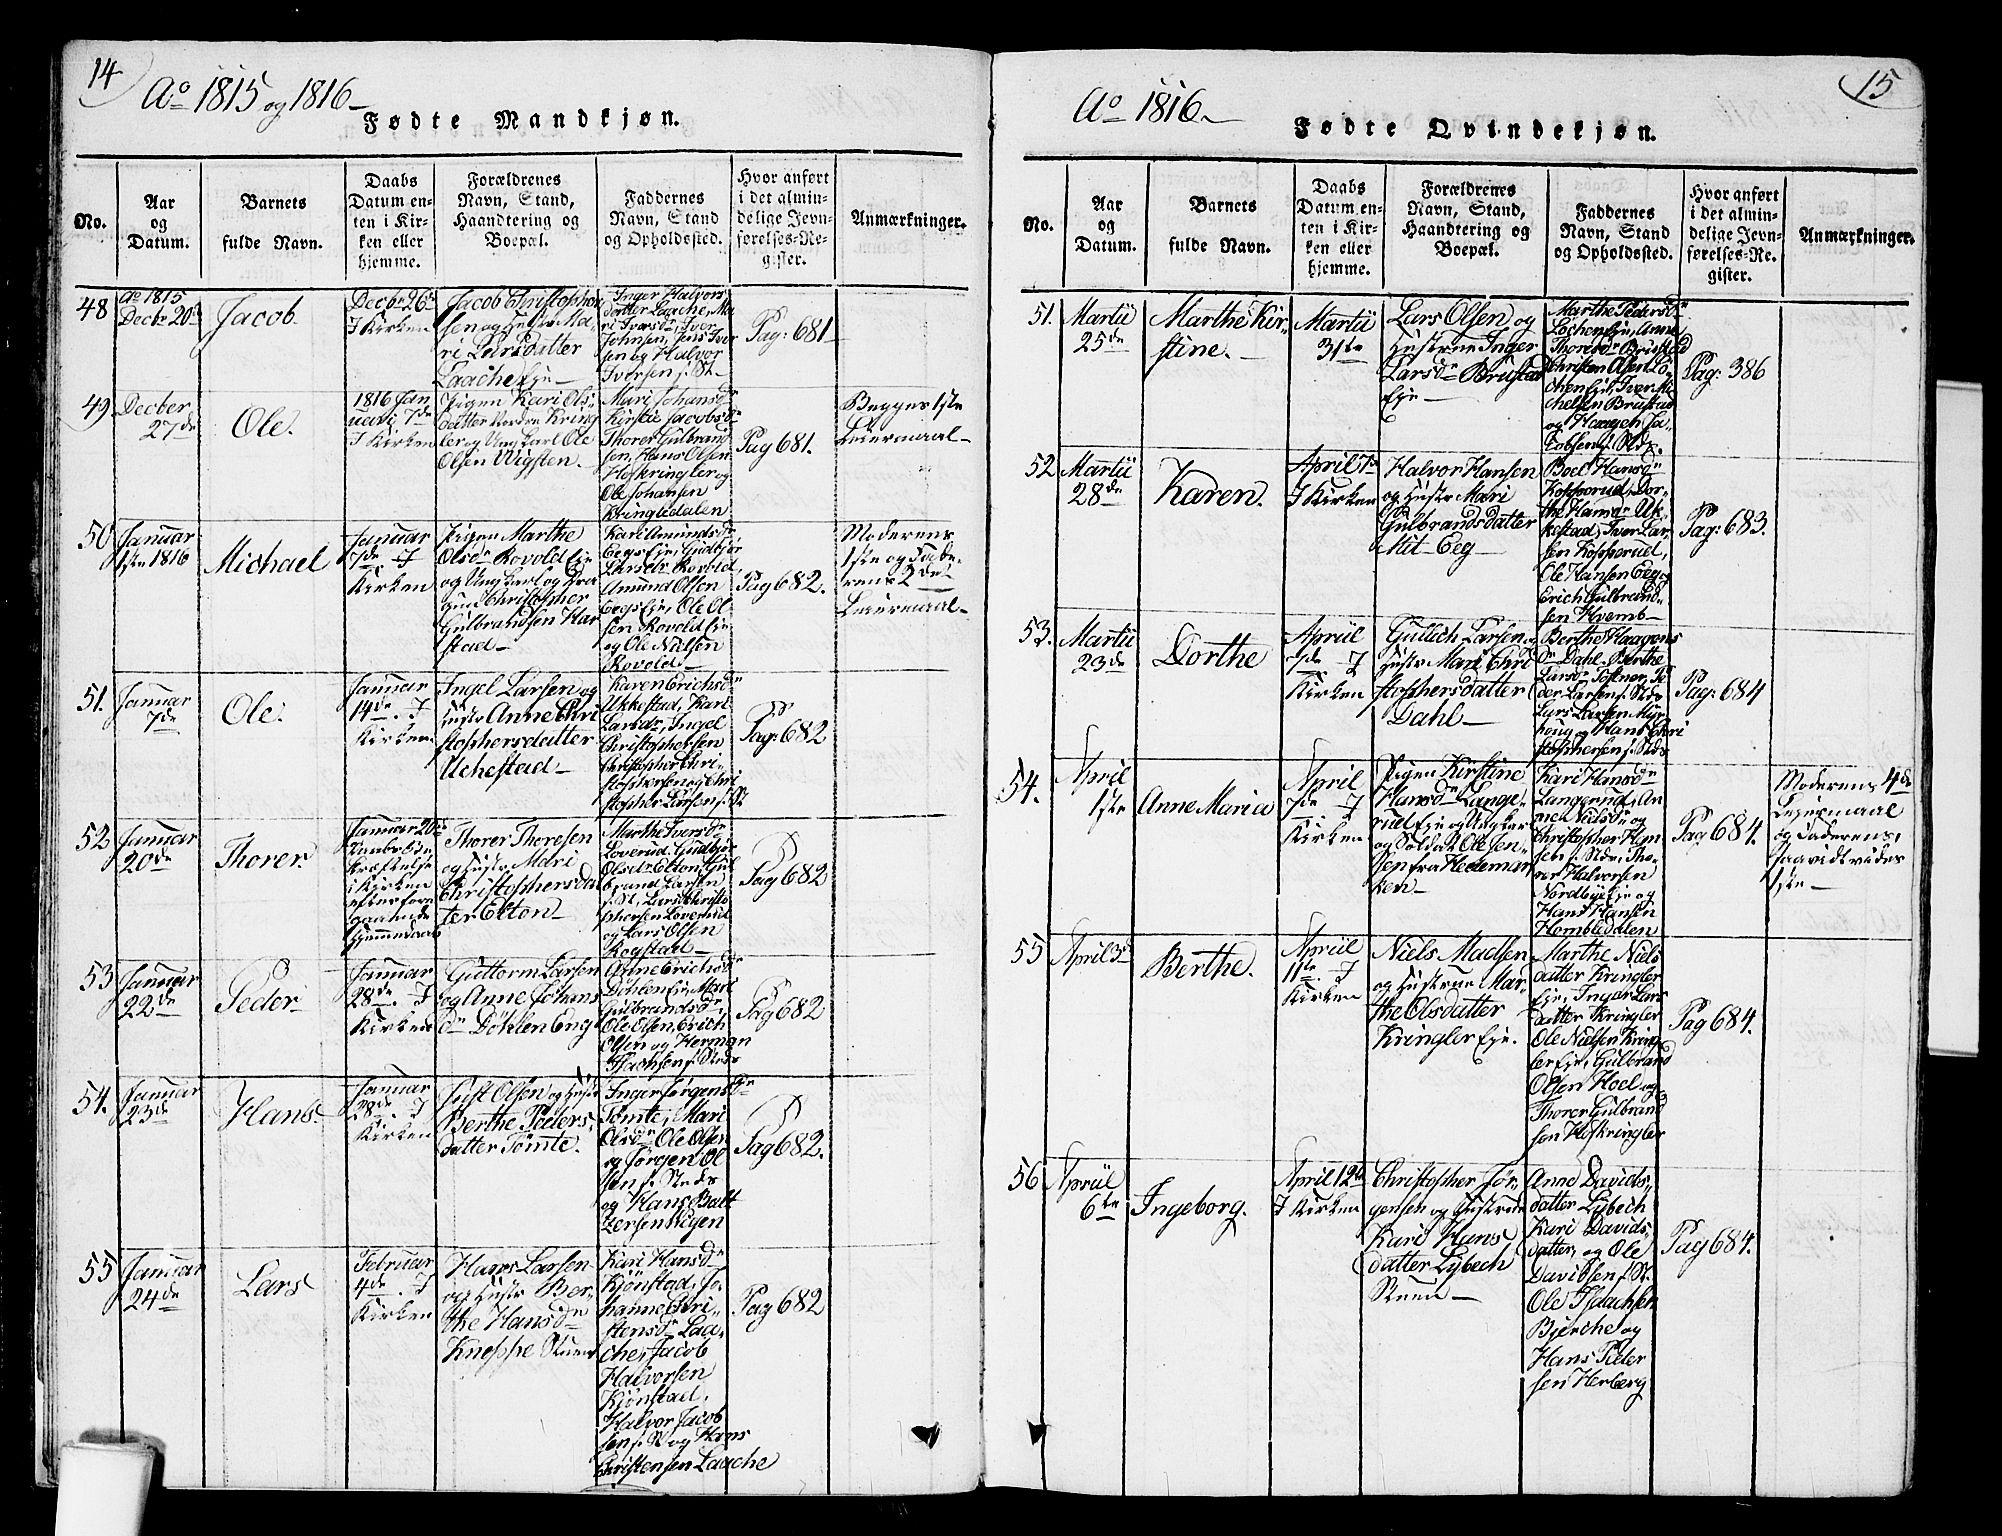 14
Ao 1815 og 1816
Fødte Mandkjøn.
No.
Aar
og
Datum.
Barnets
fulde Navn.
Daabs
Datum en-
ten i Kir-
ken eller
hjemme.
Forældrenes
Navn, Stand,
Haandtering og
Boepæl.
Faddernes
Navn, Stand
og Opholdssted.
Hvor anført
i det almin-
delige Jevn-
førelses-Re-
gister.
Anmærkninger.
48
Ao 1815
Decbr 20de
Jacob
Decbr 26de
I Kirken
Jacob Christopher
sen og Hustr Ma-
ri Larsdatter
Laache Eje
Inger Halvors
datter Laache, Ma
ri Iversdr, Iver
Johnsen, Jens Iver
sen og Halvor
Iversen f. St.
Pag: 681
49
Decber
27de
Ole.
1816 Jan
uarij 7de
I Kirken
Pigen Kari Ols-
datter Nordre Kring
ler og Ung Karl Ole
Olsen Wigsten.
Mari Johansdr
Kirstie Jacobsdr
Thorer Gulbrand
sen, Hans Olsen
Hofkringler og
Ole Johansen
Kringlidalen
Pag 681.
Begges 1ste
Leiermaal
50
Januar
1ste 1816
Michael
Januar
7de I
Kirken
Pigen Marthe
Olsdr Rovold Eje
og Ung Karl og
Christopher
Gulbrandsen Har
stad
Kari Amundsdr
Eegs Eje, Gudbjør
Larsdr Rovold,
Amund Olsen
Eegs Eje, Ole Ol
sen Rovold Eje
og Ole Nielsen
Rovold
Pag 682.
Moderens
1ste og Fade-
rens 2det
Leiermaal
51.
Januar
7de
Ole.
Januar
14de. I
Kirken.
Ingel Larsen og
Hustr Anne Chri
stophersdatter
Uchestad
Karen Erichsdr
Ukkestad, Kari
Larsdr, Ingel
Christophersen
Christopher Chri-
stophersen og Chri
stopher Larsen f. St
Pag: 682
52
Januar
20de
Thorer
Januar 20de
kræftnelse
i Kirken
efter fore
gaaende
hjemmedaab
Thorer Thoresen
og Hustr Mari
Christophersdat
ter Elton
Marthe Iversdr
Loverud, Gudbjør
Olsdr Elton, Gul
brand Larsen
f. St, Lars Christo
phersen Loverud
og Lars Olsen
Rogstad
Pag 682
53
Januar
22de
Peder
Januar
28de. I
Kirken
Guttorm Larsen
og Anne Johans
dr Döhlen Eng
Anne Erichsdr
Döhlen Eje, Mari
Gulbrandsdr,
Ole Olsen, Erich
Olsen og Herman
Isachsen f. Steds
Pag 682
54.
Januar
23de
Hans.
Januar
28de. I
Kirken
Just Olsen og Hustr
Berthe Peders-
datter Tömte.
Inger Jørgensdr
Tömte, Mari
Olsdr Ole Olsen
og Jørgen Ol
sen f. Steds
og Hans Balt
zersen Hegen
Pag 682.
55
Januar
24de
Lars
Februar
4de. I
Kirken
Hans Larsen
og Hustr Ber-
the Hansdr
Kneppe Stuen
Kari Hansdr
Kjönstad, Jo-
hanne Chri-
stensdr Laa-
che, Jacob
Halvorsen
Kjönstad,
Halvor Jacob
sen f. St og Hans
Christensen Laache
Pag 682
15
Ao 1816
Fødte Qvindekjøn.
No.
Aar
og
Datum.
Barnets
fulde Navn.
Daabs
Datum en-
ten i Kir-
ken eller
hjemme.
Forældrenes
Navn, Stand,
Haandtering og
Boepæl.
Faddernes
Navn, Stand
og Opholdssted.
Hvor anført
i det almin-
delige Jevn-
førelses-Re-
gister.
Anmærkninger.
51.
Martii
25de
Marthe Kir-
stine.
Martii
31te
Lars Olsen og
Hustrue Inger
Larsdr Brustad
Eje
Marthe Pedersdr
Lochen Eje, Anne
Thoresdr Brustad
Christen Olsen Lo-
chen Eje, Iver Mi
chelsen Brustad
og Haagen Ja-
cobsen f. Sted.
Pag: 386
52
Martii
28de
Karen.
April 7de
I Kirken
Halvor Hansen
og Hustr Mari
Gulbrandsdatter
Mit Eeg
Boel Hansdr
Kopperud, Dor-
the Hansdr Uk-
kestad, Iver Lar-
sen Kopperud,
Ole Hansen Eeg og
Erich Gulbrand-
sen Hvemb
Pag: 683.
53.
Martii
23de
Dorthe
April
7de I
Kirken
Gullich Larsen og
Hustr Mari Chri
stophersdatter
Dahl
Berthe Haagens
dr Dahl, Berthe
Larsdr Tofsner, Pe-
der Larsen f. Sted,
Lars Larsen Myr
houg og Hans Chri
stophersen f. Sted
Pag: 684
54.
April
1ste
Anne Maria
April
7de I
Kirken
Pigen Kirstine
Hansdr Lange-
rud Eje og Ungkarl
og Soldat Ole Jen-
sen fra Hedemar
ken
Kari Hansdr
Langerud, An-
ne Nielsdr og
Christopher Han
sen f. Sted, Tho-
rer Halvorsen
Nordbye Eje og
Hans Hansen
Hombledalen
Pag 684.
Moderens 4de
Leiermaal
og Faderens,
saavidt vides
1ste
55
April 3de
Berthe.
April
11te I
Kirken
Niels Madsen
og Hustrue Mar-
the Olsdatter
Kringler Eje.
Marthe Niels
datter Kringler
Eje, Inger Lars
datter Kringler
Ole Nielsen Kring
ler Eje, Gulbrand
Olsen Hoel og
Thorer Gulbrand
sen Hofkringler
Pag 684.
56
April
6te
Ingeborg.
April 12te
I Kirken
Christopher Jör-
gensen og Hustrue
Kari Hans
datter Lybech
Stuen
Anne Davids-
datter Lybech
Kari Davids
datter, og Ole
Davidsen f. St.
Ole Isachsen
Bjerche og
Hans Peder
sen Herberg
Pag 684.